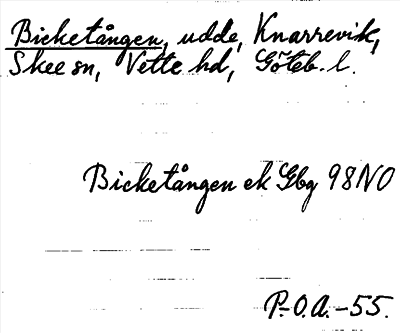 Bicketången, udde, Knarrevik,
Skee sn, Vette hd, Göteb. l.
Bicketången ek Gbg 98NO
P.-O.A.-55.